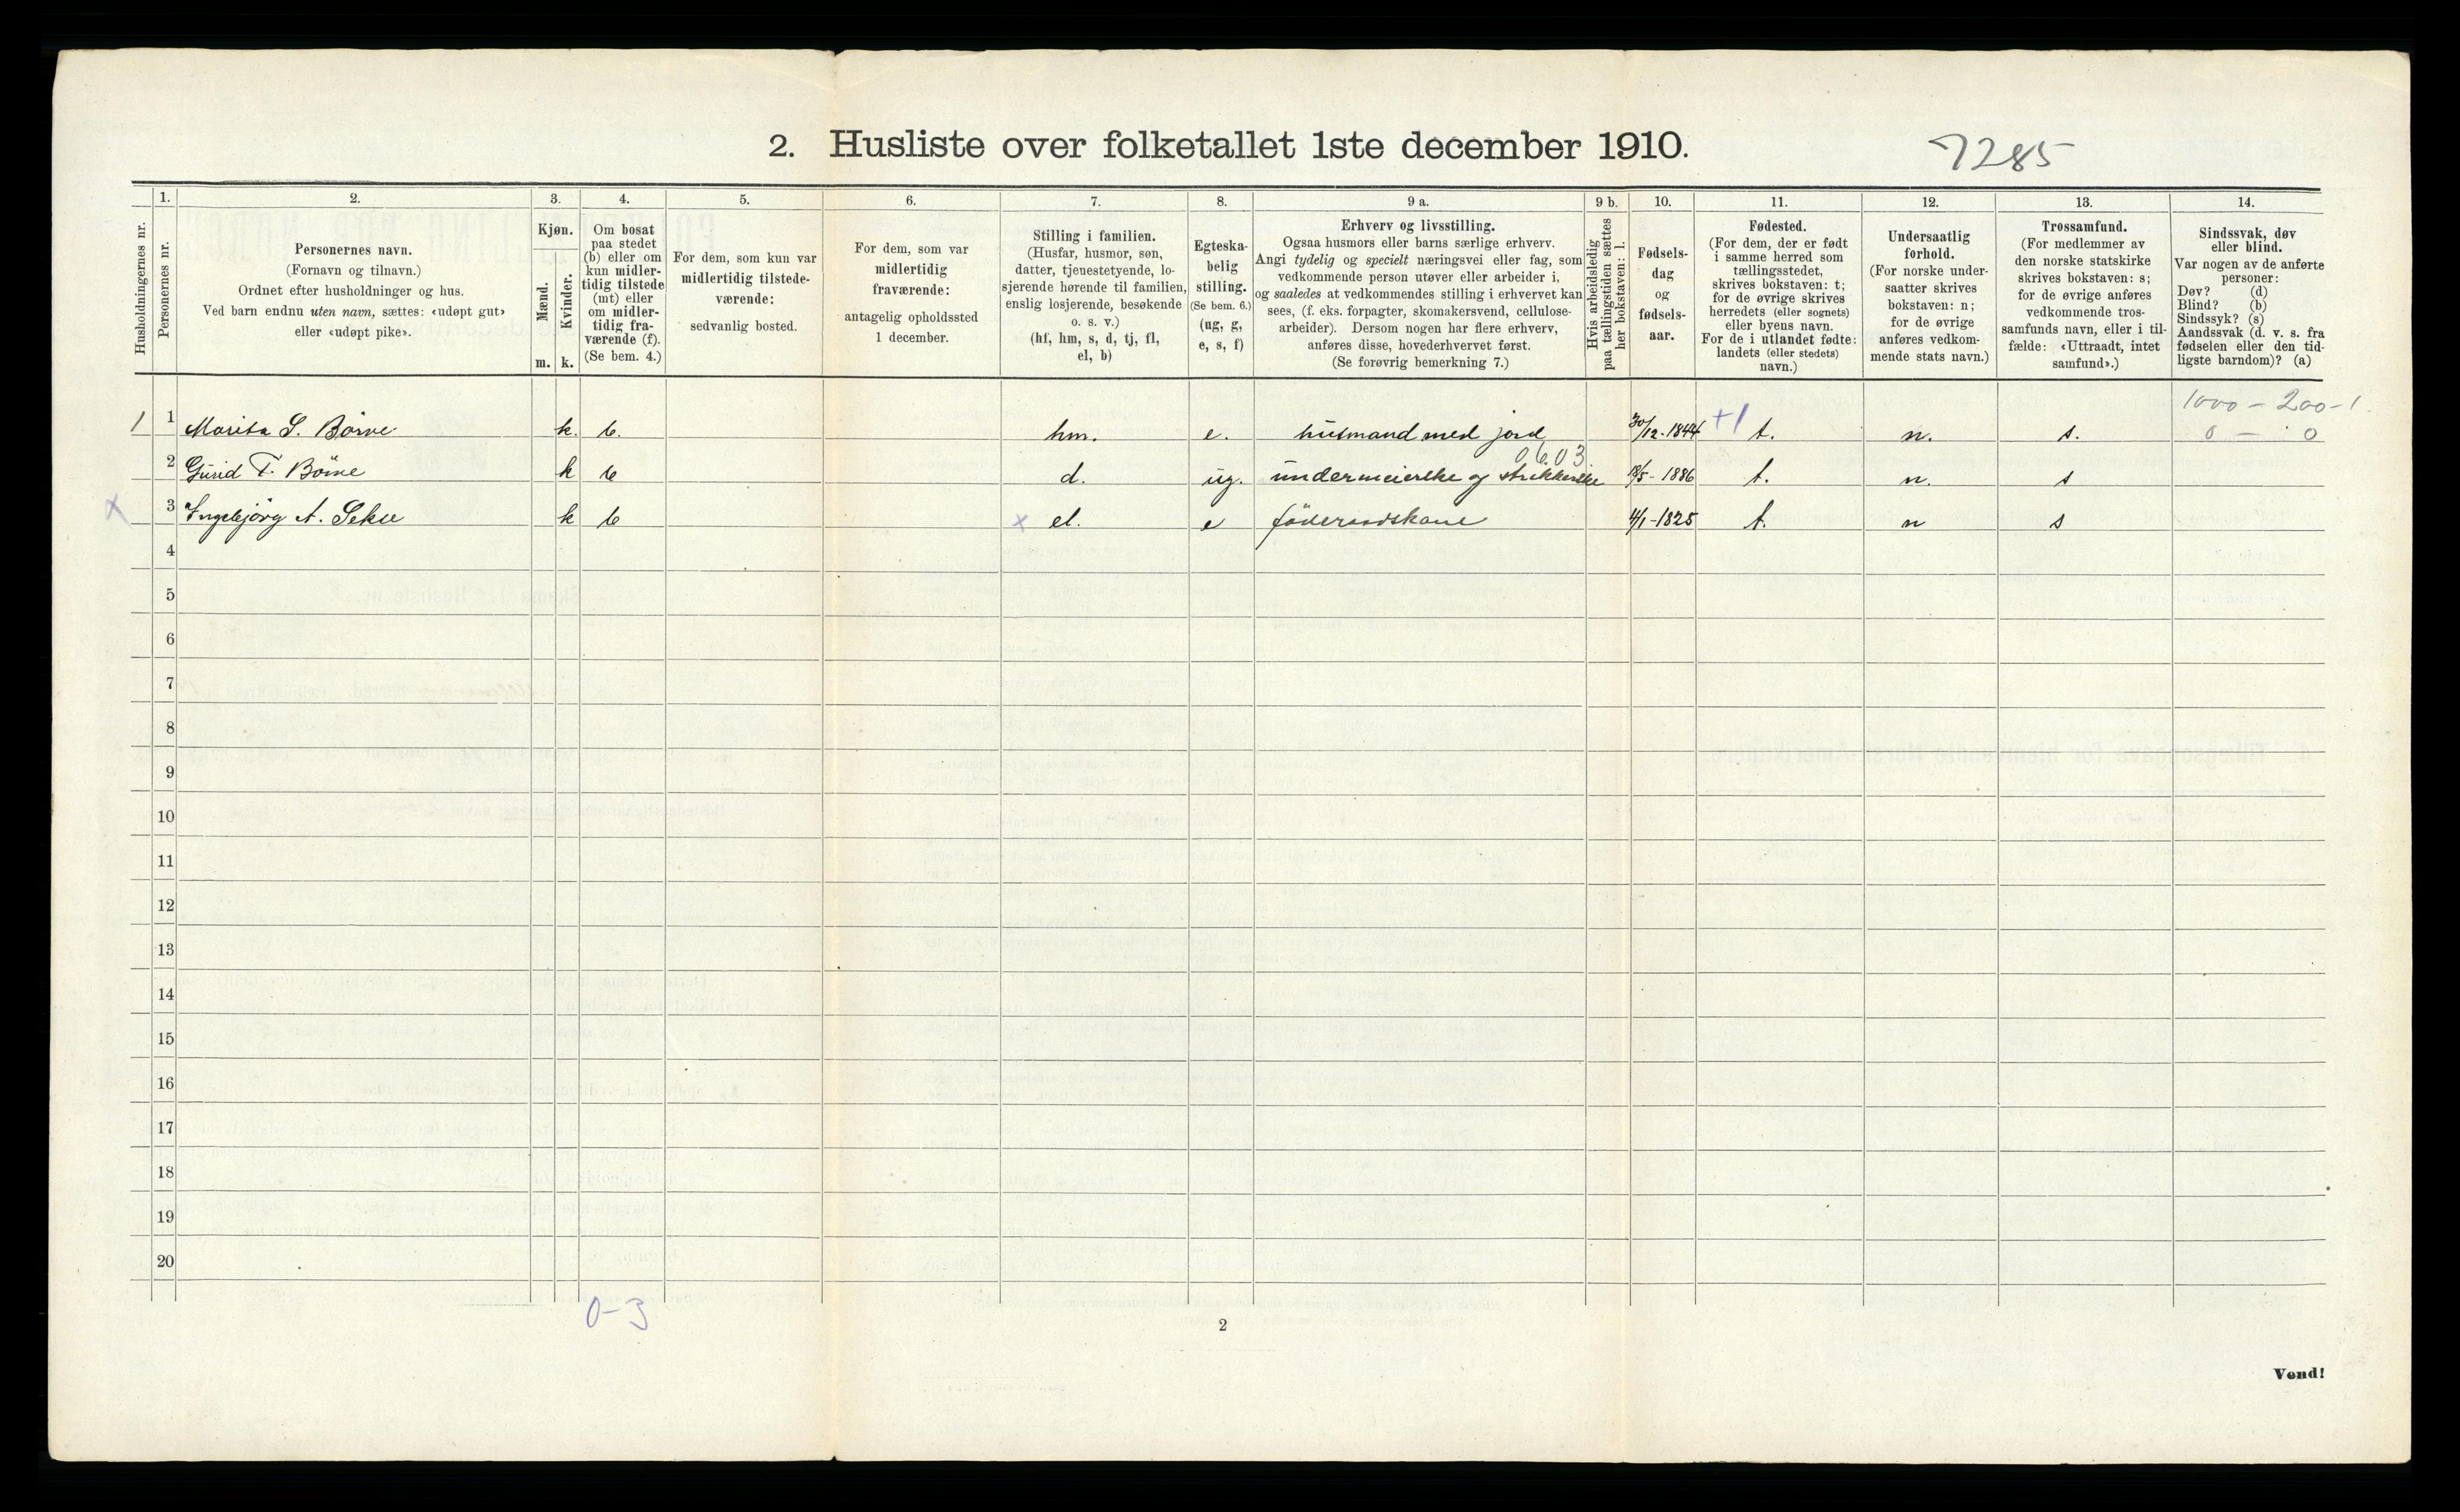 2. Husliste over folketallet 1ste december 1910.
7285
1. 2. 3. 4. 5. 6. 7. 8. 9 a. 9 b. 10. 11. 12. 13. 14.
Husholdningernes nr.
Personernes nr.
Personernes navn.
(Fornavn og tilnavn.)
Ordnet efter husholdninger og hus.
Ved barn endnu uten navn, sættes: «udøpt gut»
eller «udøpt pike».
Kjøn.
Mænd.
Kvinder.
m. k.
Om bosat
paa stedet
(b) eller om
kun midler-
tidig tilstede
(mt) eller
om midler-
tidig fra-
værende (f).
(Se bem. 4.)
For dem, som kun var
midlertidig tilstede-
værende:
sedvanlig bosted.
For dem, som var
midlertidig
fraværende:
antagelig opholdssted
1 december.
Stilling i familien.
(Husfar, husmor, søn,
datter, tjenestetyende, lo-
sjerende hørende til familien,
enslig losjerende, besøkende
o. s. v.)
(hf, hm, s, d, tj, fl,
el, b)
Egteska-
belig
stilling.
(Se bem. 6.)
(ug, g,
e, s, f)
Erhverv og livsstilling.
Ogsaa husmors eller barns særlige erhverv.
Angi tydelig og specielt næringsvei eller fag, som
vedkommende person utøver eller arbeider i,
og saaledes at vedkommendes stilling i erhvervet kan
sees, (f. eks. forpagter, skomakersvend, cellulose-
arbeider). Dersom nogen har flere erhverv,
anføres disse, hovederhvervet først.
(Se forøvrig bemerkning 7.)
Hvis arbeidsledig
paa tællingstiden sættes
her bokstaven: l.
Fødsels-
dag
og
fødsels-
aar.
Fødested.
(For dem, der er født
i samme herred som
tællingsstedet,
skrives bokstaven: t;
for de øvrige skrives
herredets (eller sognets)
eller byens navn.
For de i utlandet fødte:
landets (eller stedets)
navn.)
Undersaatlig
forhold.
(For norske under-
saatter skrives
bokstaven: n;
for de øvrige
anføres vedkom-
mende stats navn.)
Trossamfund.
(For medlemmer av
den norske statskirke
skrives bokstaven: s;
for de øvrige anføres
vedkommende tros-
samfunds navn, eller i til-
fælde: «Uttraadt, intet
samfund».)
Sindssvak, døv
eller blind.
Var nogen av de anførte
personer:
Døv? (d)
Blind? (b)
Sindssyk? (s)
Aandssvak (d. v. s. fra
fødselen eller den tid-
ligste barndom)? (a)
1000 - 200 - 1.
1 1 Marita S. Börve k. b. hm. e. husmand med jord 30/12-1844 +1 t. n. s. 0 - 0
0603
2 Gurid T. Börve k b d. ug. undermeierske og strikkerske 18/5-1886 t. n. s
x 3 Ingebjörg A. Sekse k b x el. e föderaadskone 4/1-1825 t. n s
4
5
6
7
8
9
10
11
12
13
14
15
16
17
18
19
20
0-3
2
Vend!